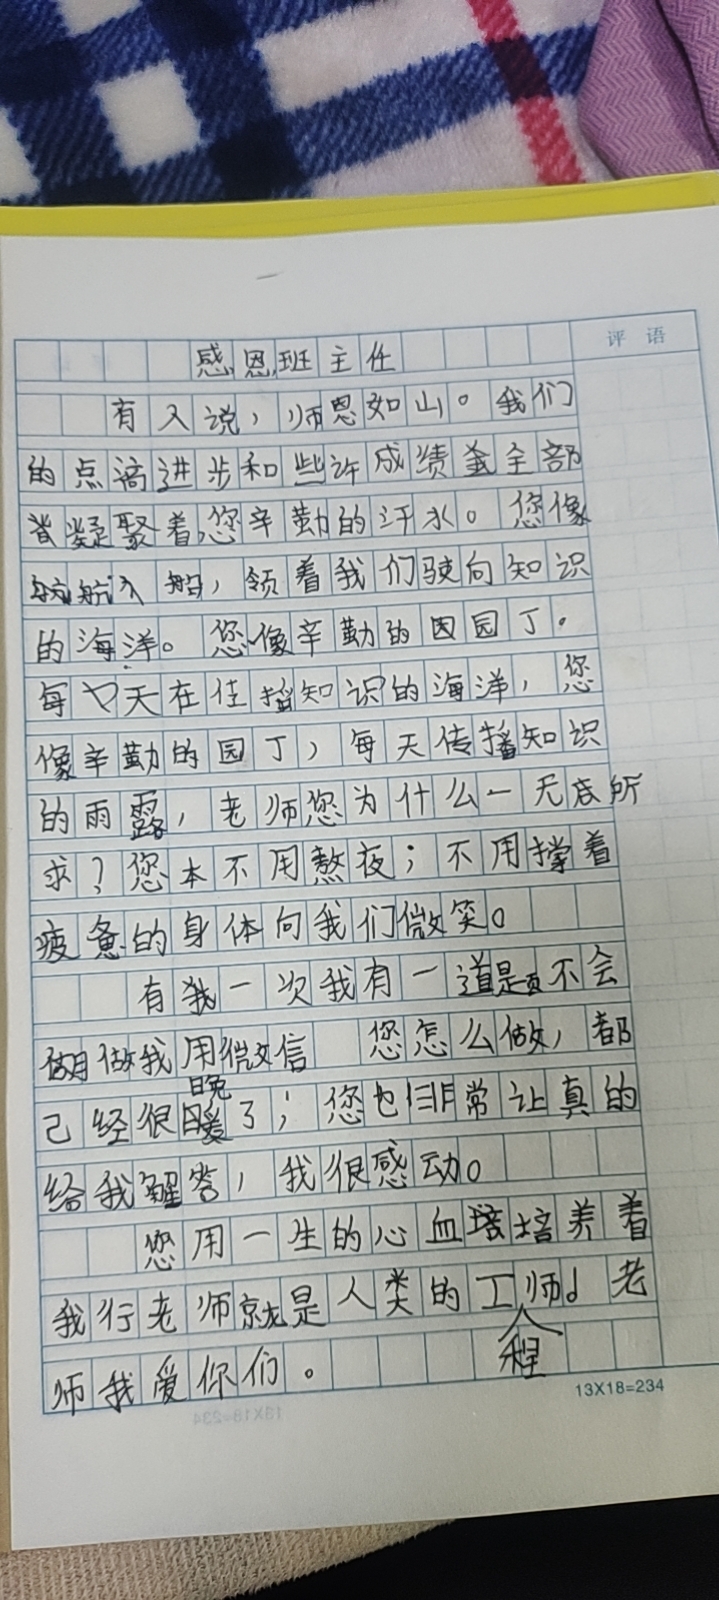 评语
感恩班主任
有人说，师恩如山。我们
的点滴进步和些许成绩全部
凝聚着您辛勤的汗水。您像
航船，领着我们驶向知识
的海洋。您像辛勤的园丁。
每天在传播知识的海洋，您
像辛勤的园丁，每天传播知识
的雨露，老师您为什么一无底所
求？您本不用熬夜；不用撑着
疲惫的身体向我们微笑。
有我一次我有一道题不会
做做我用微信 您怎么做，都
己经很晚了；您也非常让真的
给我解答，我很感动。
您用一生的心血培培养着
我行老师就是人类的工程师。老
师我爱你们。
13X18=234